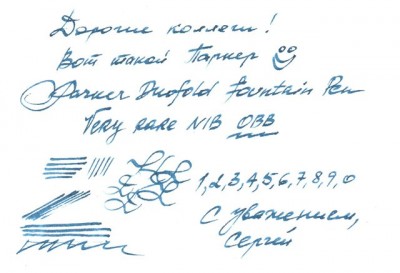 Дорогие коллеги!
Вот такой Паркер
Parker Duofold Fountain Pen
Very rare NIB OBB
1,2,3,4,5,6,7,8,9,0
С уважением,
Сергей